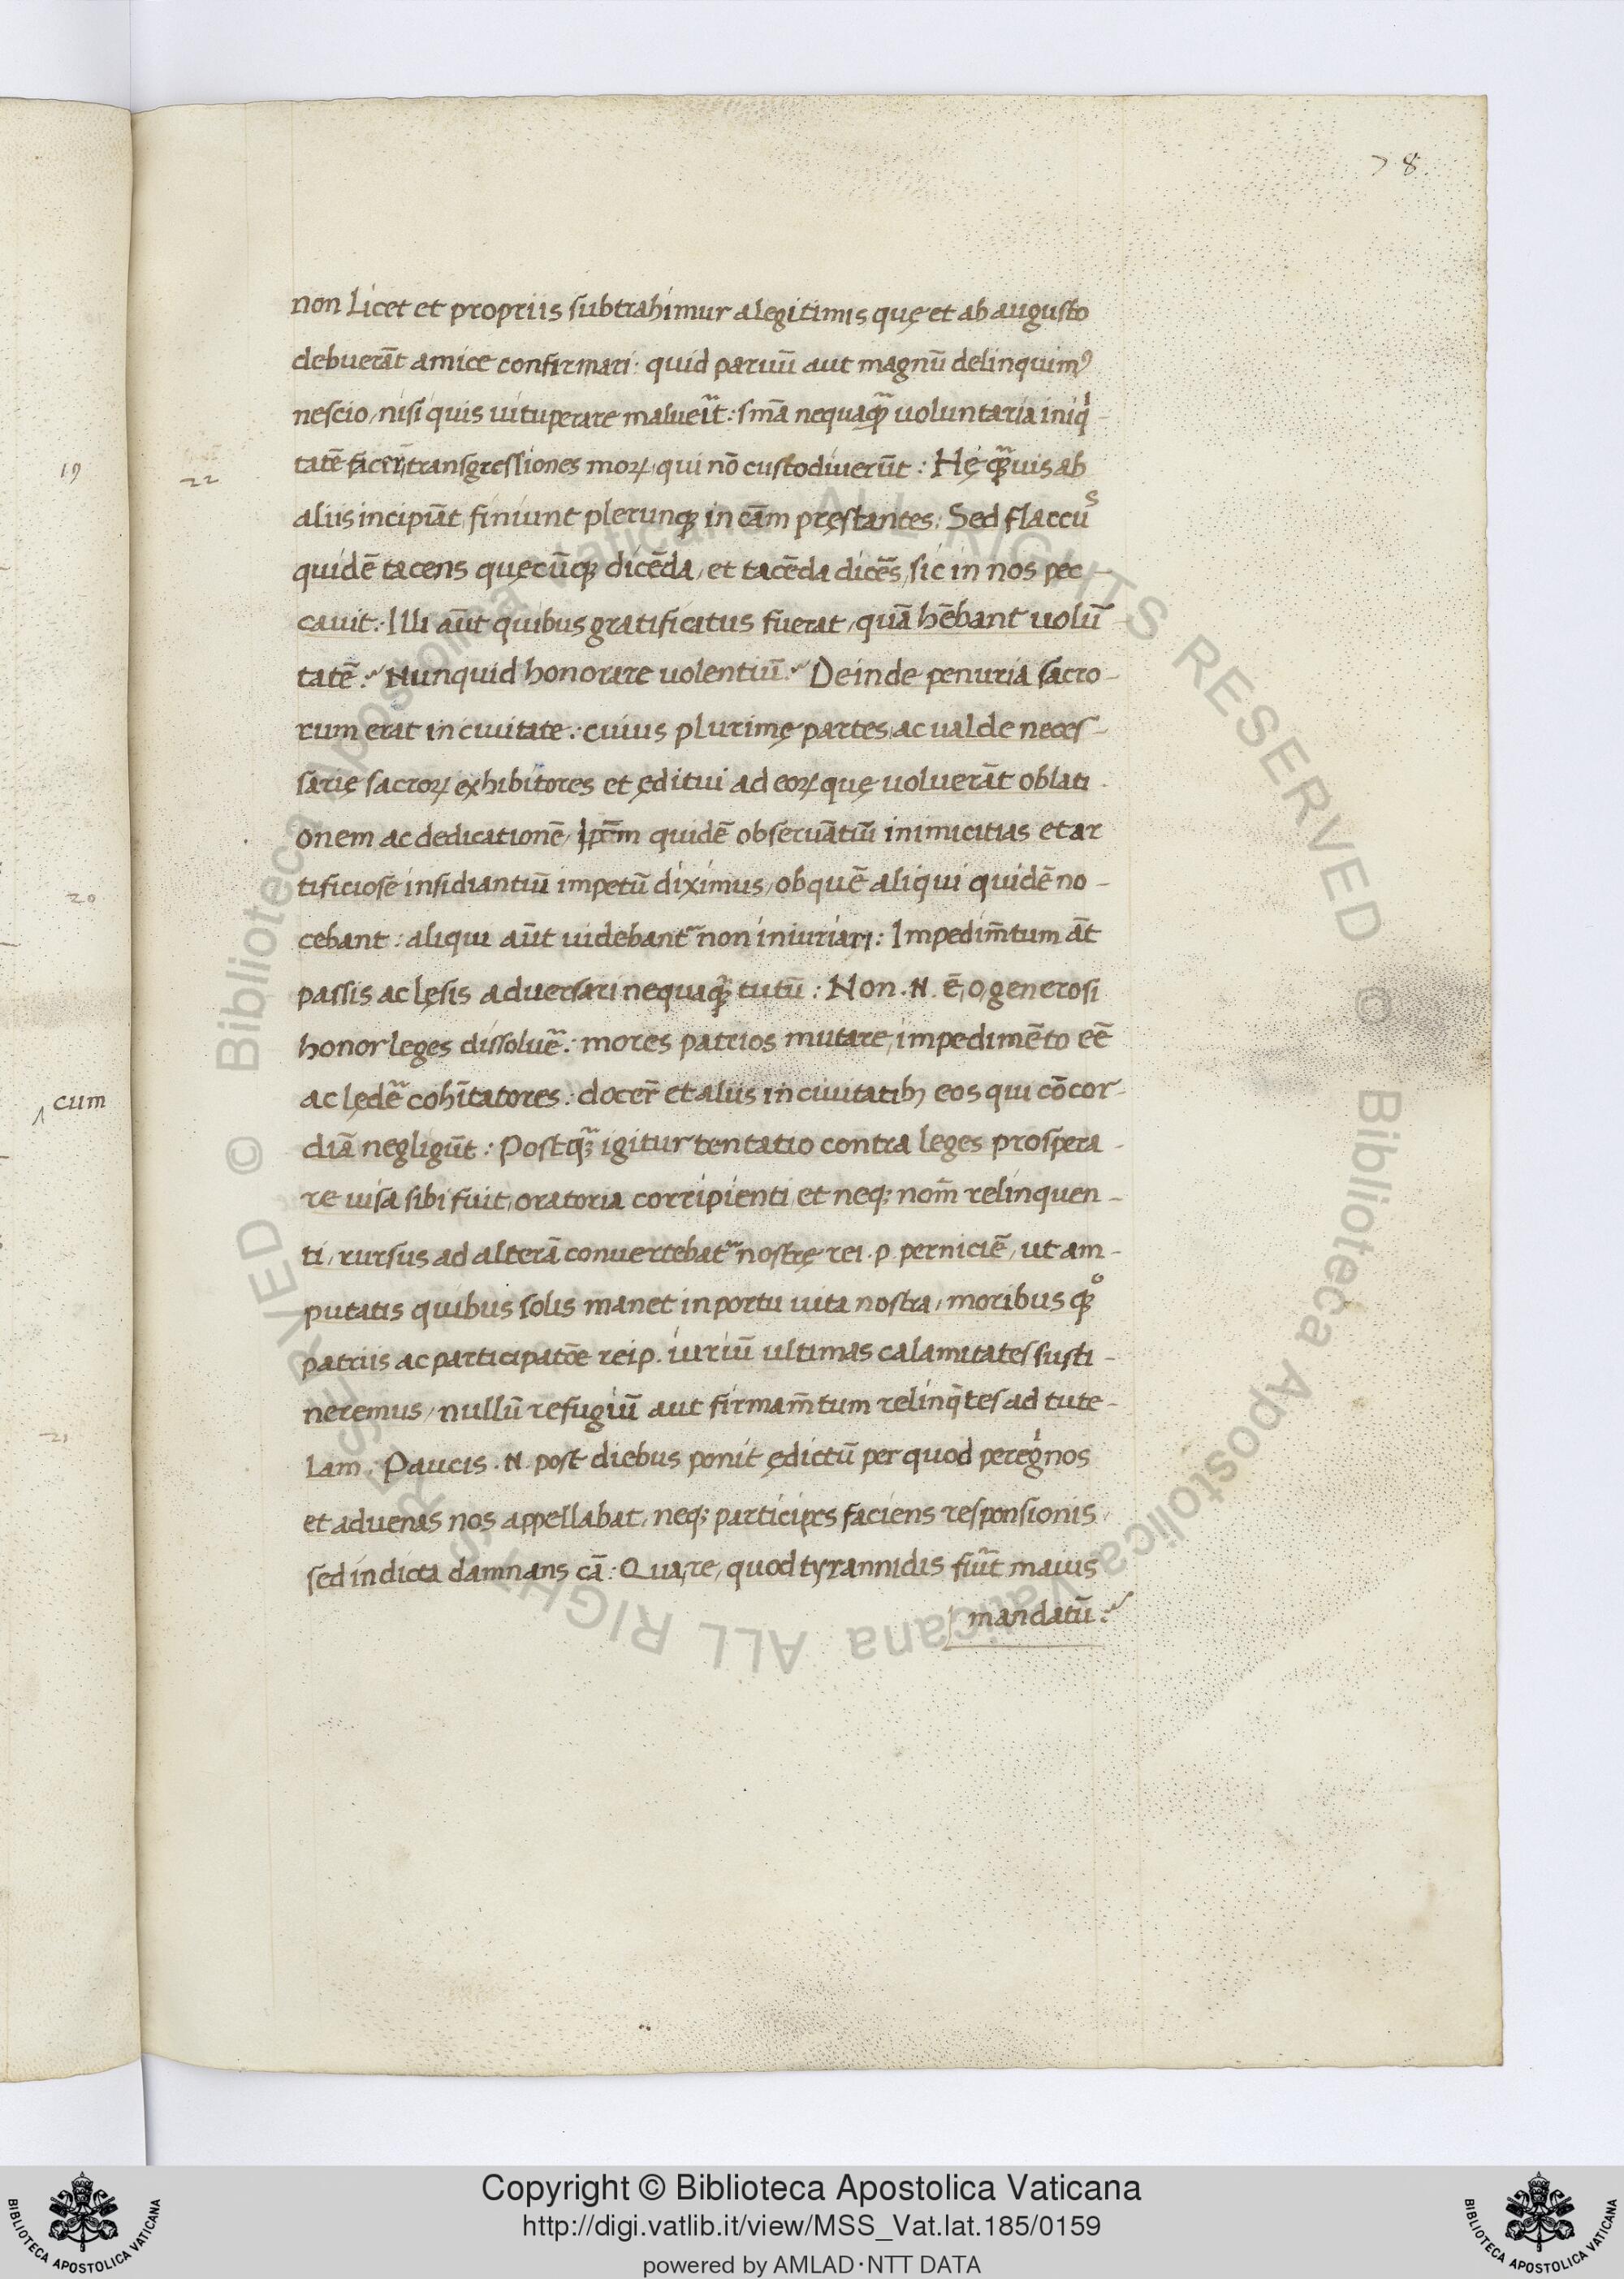 78
non licet et propriis subtrahimur a legitimis quę et ab augusto
debuerāt amice confirmari: quid paruū aut magnū delinquimꝰ
nescio, nisi quis uituperare malueit: smā nequaqꝫ uoluntaria iniqi-
tatē facer, transgressiones moꝝ, qui nō custodiuerūt: Hę qꝫuis ab
19
22
aliis incipiāt, finiunt plerunqꝫ in cām pręstantes: Sed flaccus
quidē tacens quęcūqꝫ dicēda, et tacēda dicēs, sic in nos pec-
cauit: Illi aūt quibus gratificatus fuerat, quā hēbant uolū
tatē: Nunquid honorare uolentiū: Deinde penuria sacro-
rum erat in ciuitate: cuius plurimę partes, ac ualde neces-
sarię sacroꝝ exhibitores et ęditui ad eoꝝ quę uoluerāt oblati-
onem ac dedicationē, quidē obseruātiū inimicitias et ar
tificiose insidiantiū impetū diximus, ob quē aliqui quidē no-
20
cebant: aliqui aūt uidebant non iniuriari: Impedim̄tum āt
passis ac lęsis aduersari nequaqꝫ tutū: Non .N. ē, o, generosi
honor leges dissoluē: mores patrios mutare, impedimēto eē
ac lędē cohītatores: docer̄ et aliis in ciuitatibꝫ eos qui cōcor-
cum
diā negligūt: Postqꝫ igitur tentatio contra leges prospera-
re uisa sibi fuit, oratoria corripienti, et neqꝫ nom̄ relinquen-
ti, rursus ad alterā conuertebat nostrę rei .p. perniciē, ut am-
putatis quibus solis manet in portu uita nostra, moribus qꝫ
patriis ac participatōe reip. iuriū ultimas calamitates susti-
neremus, nullū refugiū aut firmam̄tum relinq̄tes ad tute-
21
lam: Paucis .N. post diebus ponit ędictū per quod peregnos
et aduenas nos appellabat, neqꝫ participes faciens responsionis,
sed indicta damnans cā: Quare, quod tyrannidis fiūt maius
mandatū:
© Biblioteca Apostolica Vaticana ALL RIGHTS RESERVED
© Biblioteca Apostolica Vaticana ALL RIGHTS RESERVED
Copyright © Biblioteca Apostolica Vaticana
http://digi.vatlib.it/view/MSS_Vat.lat.185/0159
powered by AMLAD·NTT DATA
BIBLIOTECA APOSTOLICA VATICANA
BIBLIOTECA APOSTOLICA VATICANA